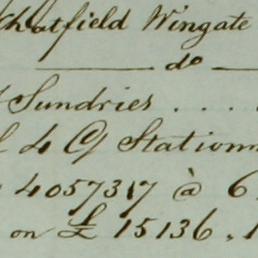 Chatfield Wingate
do
Sundries . . . .
4 G Station
4057317 @ 6
on £ 15136 . 1